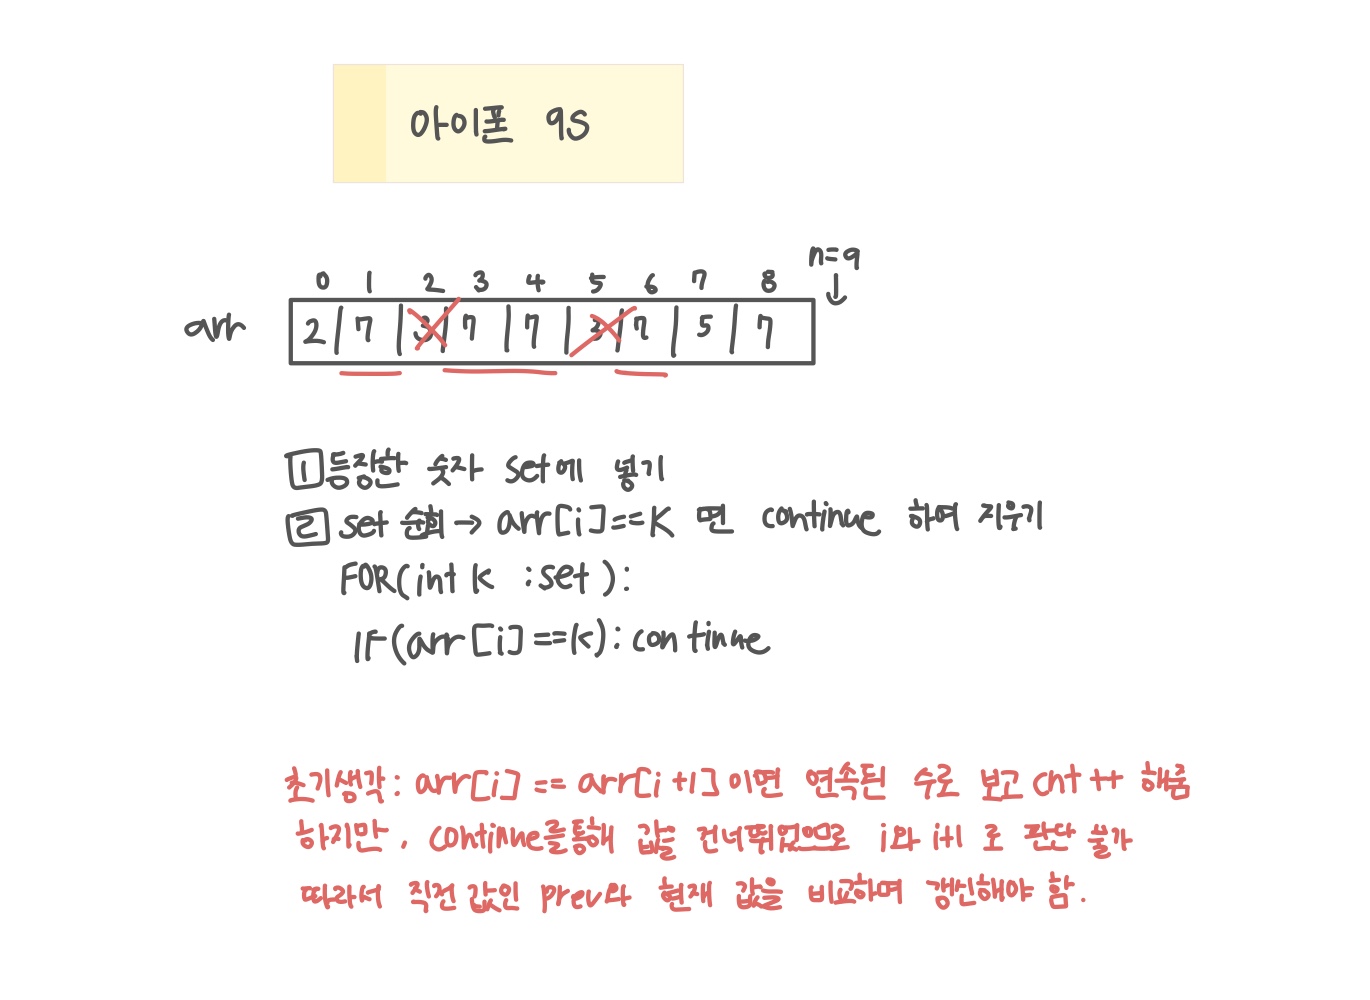 아이폰 9S
n=9
0 1 2 3 4 5 6 7 8
arr 2 7 3 7 7 3 7 5 7
1 등장한 숫자 set에 넣기
2 set 순회 → arr[i]==K 면 continue 하여 지우기
FOR(int k :set):
IF(arr[i]==k): continue
초기생각: arr[i] == arr[i+1] 이면 연속된 수로 보고 cnt ++ 해줌
하지만, continue를통해 값을 건너뛰었으므로 i와 i+1 로 판단 불가
따라서 직전 값인 prev와 현재 값을 비교하며 갱신해야 함.